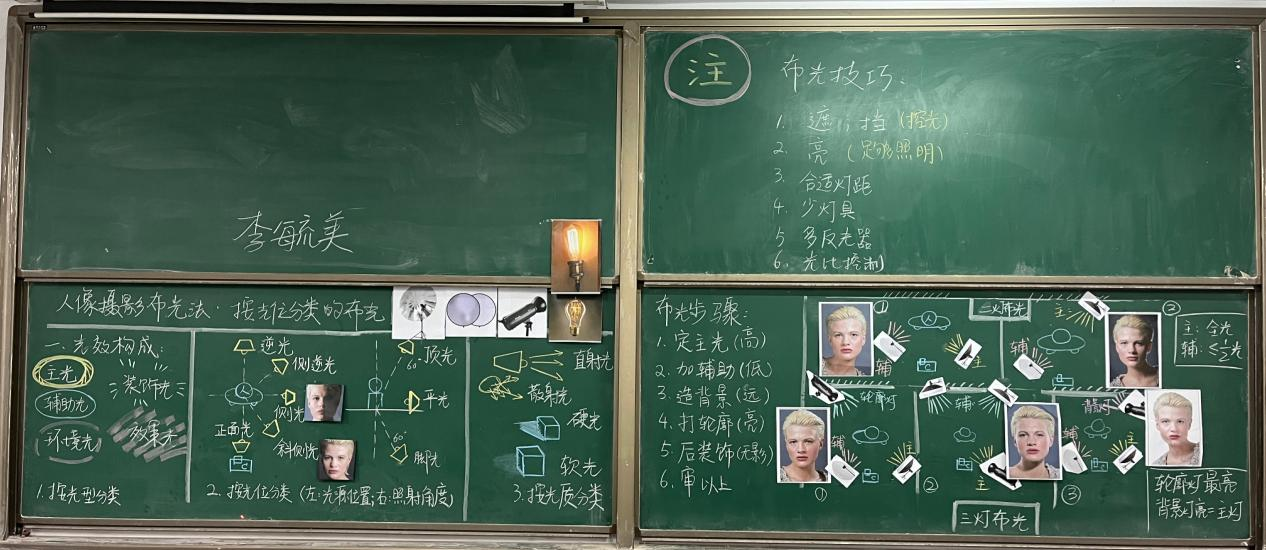 李毓美
人像摄影布光法·按光位分类的布光
一.光效构成:
主光
装饰光
辅助光
环境光
效果光
1.按光型分类
逆光
侧逆光
侧光
正面光
斜侧光
顶光
60°
平光
60°
脚光
2.按光位分类(左:光源位置;右:照射角度)
直射光
散射光
硬光
软光
3.按光质分类
注
布光技巧:
1. 遮,挡(控光)
2. 亮(足够照明)
3. 合适灯距
4. 少灯具
5 多反光器
6. 光比控制
布光步骤:
1. 定主光(高)
2. 加辅助(低)
3. 造背景(远)
4. 打轮廓(亮)
5. 后装饰(无影)
6. 审以上
二灯布光
①
辅
主
②
主
辅
主:全光
辅:≤½光
轮廓灯
辅
主
①
辅
主
②
背景灯
辅
主
③
三灯布光
轮廓灯最亮
背景灯亮=主灯